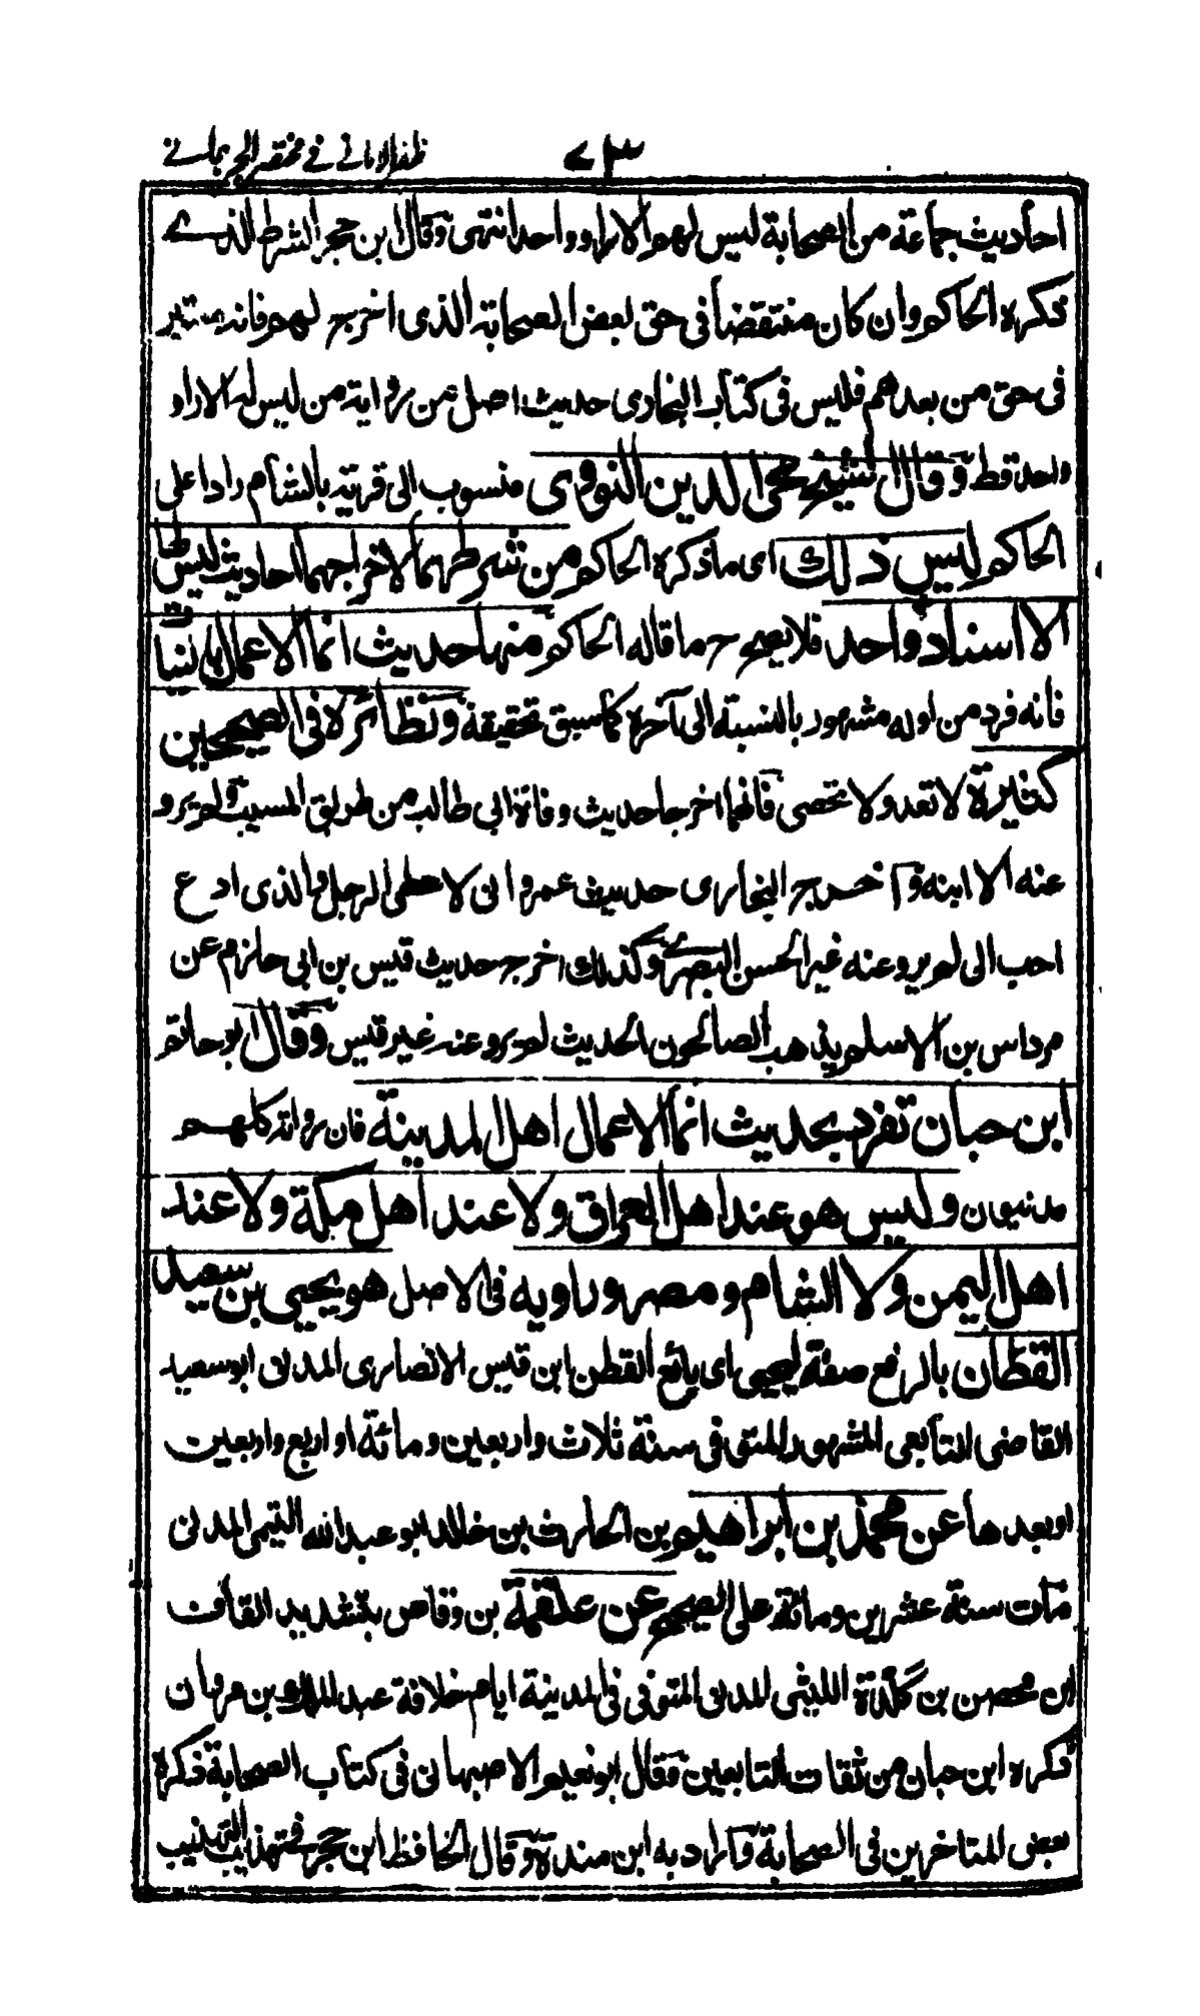 ٧٣
ظفر الامانے فے مختصر الجرجانے
احاديث جماعة من الصحابة ليس لهم الا راو واحد انتهى وقال ابن حجر الشرط الذے
ذكره الحاكم وان كان منتقضا فى حق بعض الصحابة الذى اخرج لهم فانه معتبر
فى حق من بعدهم فليس فى كتاب البخارى حديث اصل من رواية من ليس له الا راو
واحد قط وقال الشيخ محى الدين النووى منسوب الى قرية بالشام رادا على
الحاكم ليس ذلك اى ما ذكره الحاكم من شرطهما لاخراجهما احاديث ليس لها
الا اسناد واحد فلا يصح ح ما قاله الحاكم منها حديث انما الاعمال بالنيات
فانه فرد من اوله مشهور بالنسبة الى آخره كما سبق تحقيقه ونظائره فى الصحيحين
كثيرة لا تعد ولا تحصى فانهما اخرجا حديث وفاة ابى طالب من طريق المسيب ولم يرو
عنه الا ابنه واخرج البخارى حديث عمرو انى لاعطى الرجل والذى ادع
احب الى لم يرو عنه غير الحسن البصرے وكذلك اخرج حديث قيس بن ابى حازم عن
مرداس بن الاسلم يذهب الصالحون الحديث لم يرو عنه غير قيس وقال ابو حاتم
ابن حبان تفرد بحديث انما الاعمال اهل المدينة فان رواته كلهم
مدنيون وليس هو عند اهل العراق ولا عند اهل مكة ولا عند
اهل اليمن ولا الشام ومصر وراويه فى الاصل هو يحيى بن سعيد
القطان بالرفع صفة ليحيى اى بائع القطن ابن قيس الانصارى المدنى ابو سعيد
القاضى التابعى المشهور المتوفى فى سنة ثلاث واربعين ومائة او اربع واربعين
او بعدها عن محمد بن ابراهيم بن الحارث بن خالد ابو عبد الله التيمى المدنى
مات سنة عشرين ومائة على الصحيح عن علقمة بن وقاص بتشديد القاف
ابن محصن بن كلدة الليثى المدنى المتوفى فى المدينة ايام خلافة عبد الملك بن مروان
ذكره ابن حبان من ثقات التابعين وقال ابو نعيم الاصبهانى فى كتاب الصحابة ذكره
بعض المتاخرين فى الصحابة واراد به ابن مندة وقال الحافظ ابن حجر فى تهذيب التهذيب